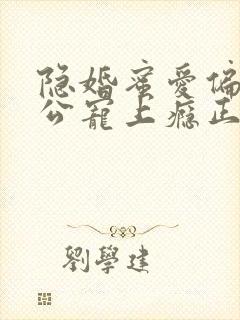 隐婚蜜爱偏
公宠上瘾正
劉學建